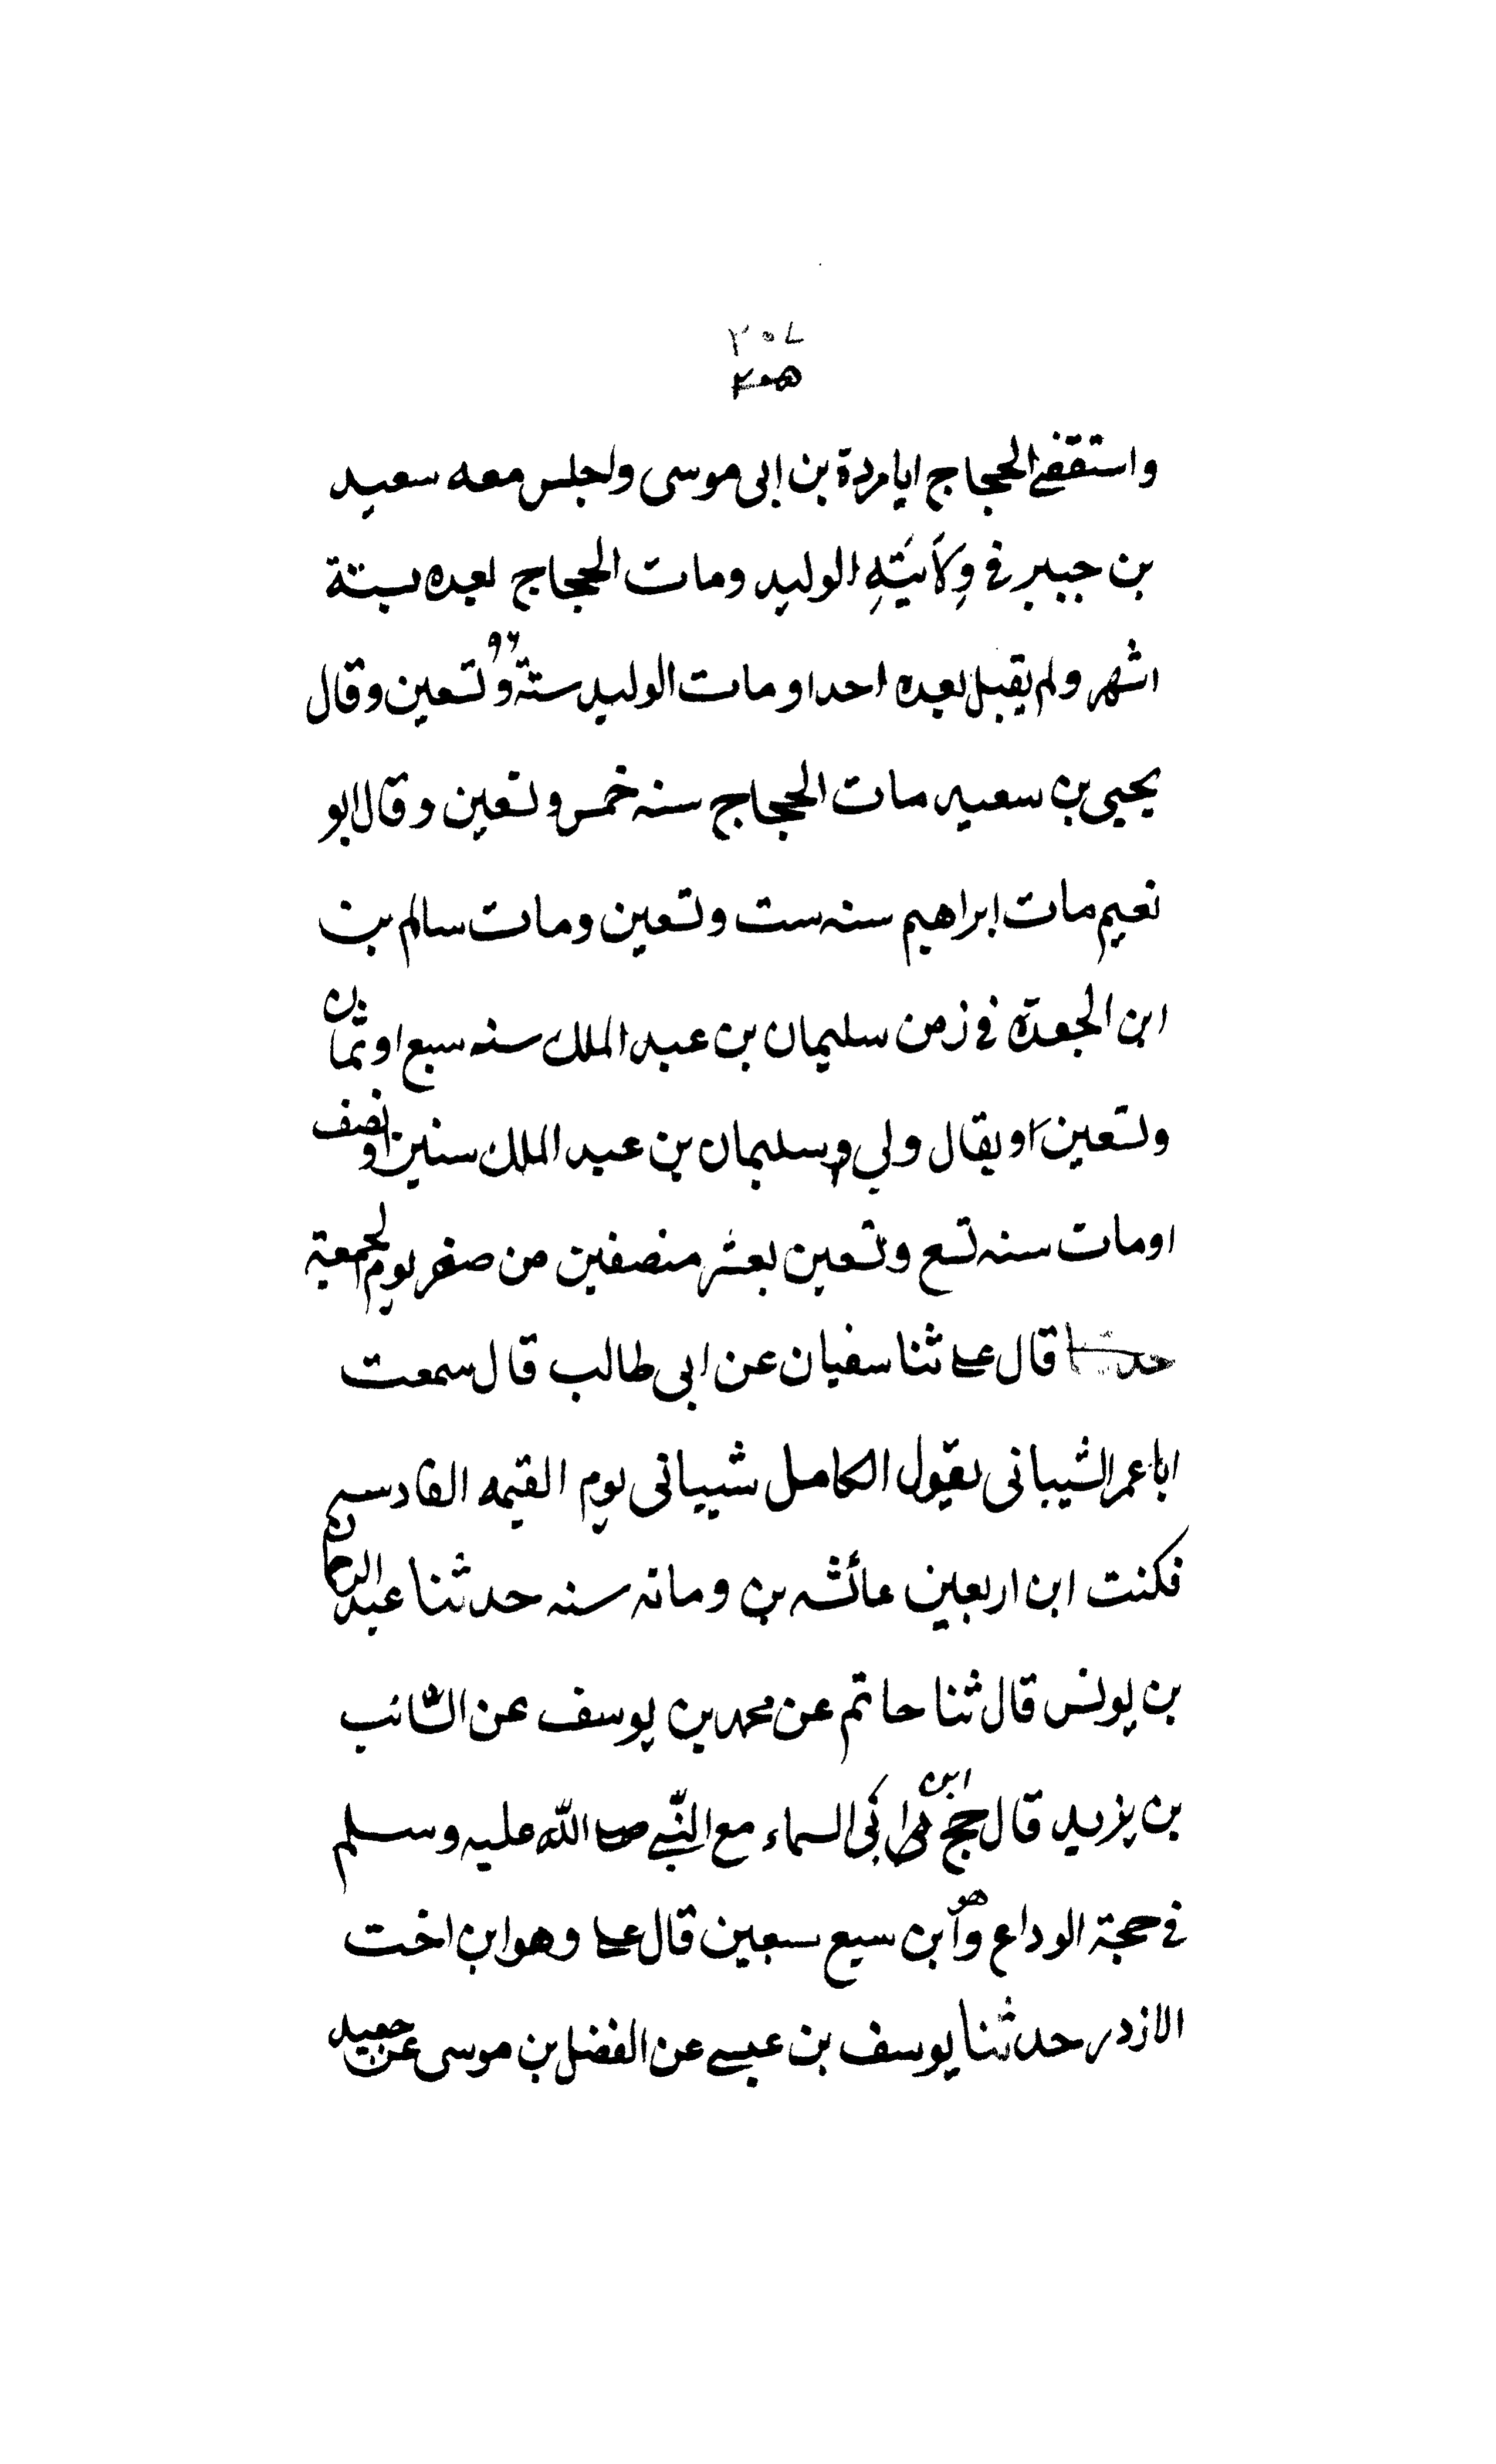 واستقضے الحجاج ابا بردة بن ابی موسی واجلس معه سعید
بن جبیر فی وِلَایَتِهِ الولید ومات الحجاج بعده بستة
اشهر ولم یقبل بعده احدا ومات الولید ستة و تسعین وقال
یحیی بن سعید مات الحجاج سنه خمس وتسعین وقال ابو
نعیم مات ابراهیم سنه ست وتسعین ومات سالم بن
ابن الجعدة فی زمن سلیمان بن عبد الملك سنه سبع او ثمان
وتسعین او یقال ولی سلیمان بن عبد الملك سنین او نصف
او مات سنه تسع وتسعین بعشر منصفین من صفر یوم الجمعة
حدثنا قال علی ثنا سفیان عن ابی طالب قال سمعت
ابا عمر الشیبانی یقول الکامل شیبانی یوم القیمه القادسیه
فکنت ابن اربعین عائشه بن ومائه سنه حدثنا عبد الرحمان
بن یونس قال ثنا حاتم عن محمد بن یوسف عن السائب
بن یزید قال حج ابن السماء مع النبی صلی الله علیه وسلم
فی حجة الوداع وهو ابن سبع سبعین قال علی وهو ابن اخت
الازدر حدثنا یوسف بن عیسی عن الفضل بن موسی عن جعید